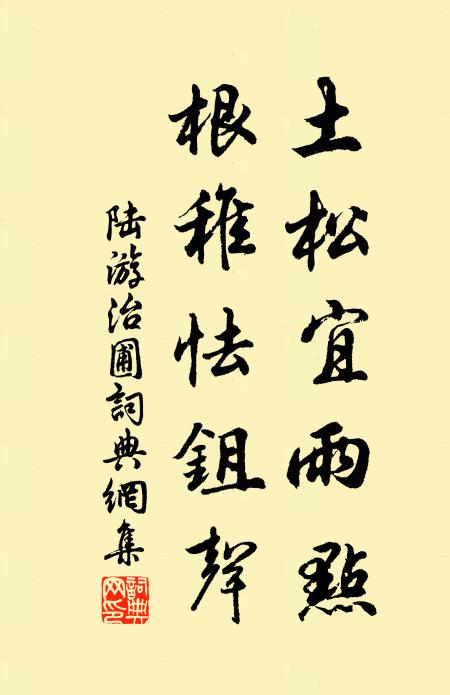 土松宜雨點
根稚怯鉏聲
陆游治圃詞典網集
詞典網印